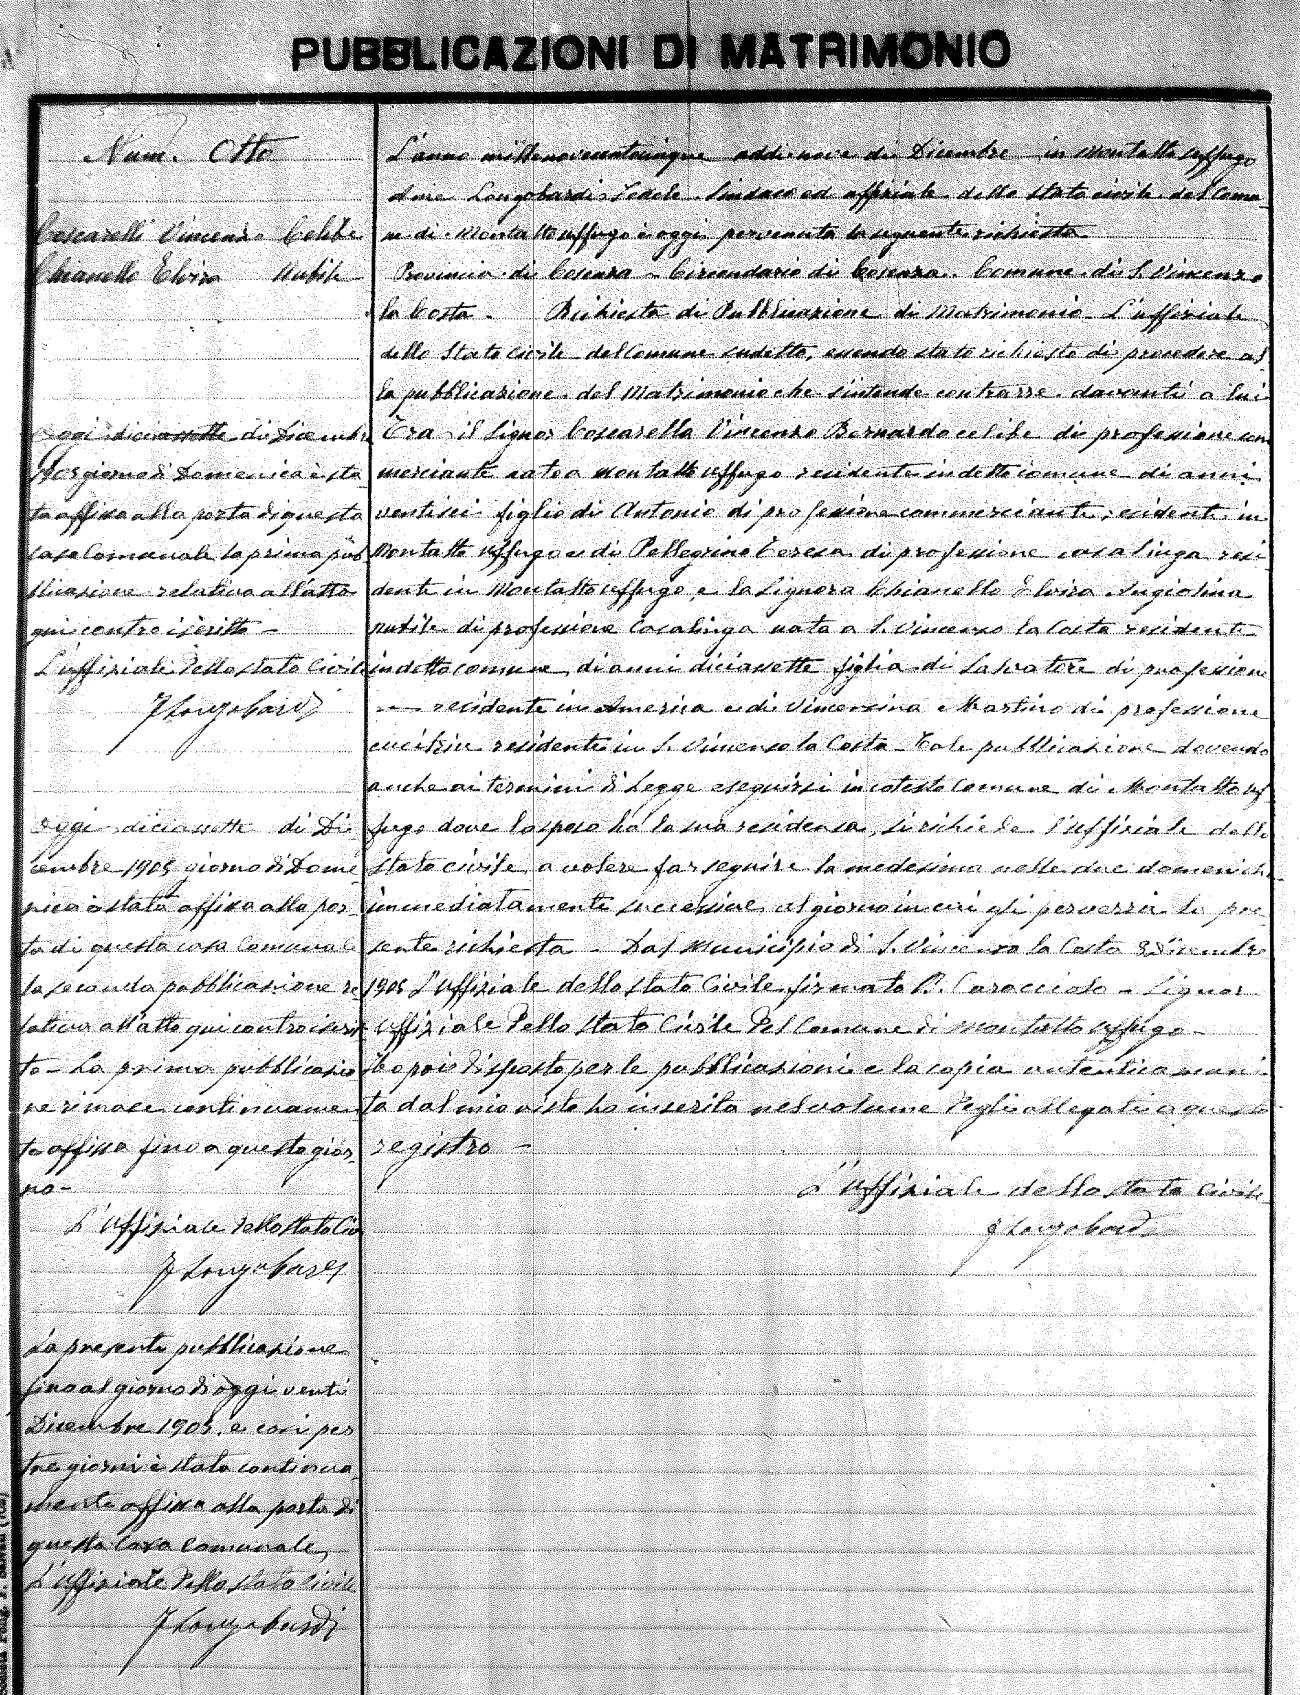 PUBBLICAZIONI DI MATRIMONIO
Num. Otto
Coscarelli Vincenzo Celibe
Chianello Elvira Nubile
Oggi diciassette di Dicembre
giorno di Domenica è sta
ta affissa alla porta di questa
casa Comunale la prima pub
blicazione relativa all'atto
qui controiscritto –
L'uffiziale dello stato Civile
F Longobardi
Oggi diciassette di Di
cembre 1905 giorno di Dome
nica è stata affissa alla por
ta di questa casa Comunale
la seconda pubblicazione re
lativa all'atto qui controiscrit
to – La prima pubblicazio
ne rimase continuamen
te affissa fino a questo gior
no –
L'uffiziale dello stato Civ
F Longobardi
La presente pubblicazione
fino al giorno di oggi venti
Dicembre 1905, e così per
tre giorni è stata continua
mente affissa alla porta di
questa Casa Comunale,
L'uffiziale dello stato Civile
F Longobardi
L'anno millenovecentocinque addi nove di Dicembre in Montalto uffugo
a me Longobardi Fedele Sindaco ed uffiziale dello stato civile del Comu
ne di Montalto uffugo è oggi pervenuta la seguente richiesta
Provincia di Cosenza – Circondario di Cosenza. Comune di S. Vincenzo
la Costa. Richiesta di Pubblicazione di Matrimonio. L'uffiziale
dello Stato Civile del Comune sudetto, essendo stato richiesto di procedere al
la pubblicazione del Matrimonio che s'intende contrarre davanti a lui
Tra il Signor Coscarella Vincenzo Bernardo celibe di professione com
merciante nato a Montalto uffugo residente in detto comune di anni
ventisei figlio di Antonio di professione commerciante, residente in
Montalto uffugo e di Pellegrino Teresa di professione casalinga resi
dente in Montalto uffugo, e la Signora Chianello Elvira Angiolina
nubile di professione Casalinga nata a S. Vincenzo la Costa residente
in detto comune, di anni diciassette figlia di Salvatore di professione
— residente in America e di Vincenzina Martino di professione
cucitrice residente in S. Vincenzo la Costa – Tale pubblicazione dovendo
anche ai termini di Legge eseguirsi in cotesto Comune di Montalto uf
fugo dove lo sposo ha la sua residenza, si richiede l'uffiziale dello
stato civile, a volere far seguire la medesima nelle due domeniche
immediatamente successive al giorno in cui gli perverrà la pre
sente richiesta – Dal Municipio di S. Vincenzo la Costa Dicembre
1905 L'uffiziale dello stato Civile firmato P. Caracciolo – Signor
Uffiziale Dello stato Civile Del Comune di Montalto uffugo –
Ho poi disposto per le pubblicazioni e la copia autentica muni
ta dal mio visto ho inserita nel volume degli allegati a questo
registro –
L'uffiziale dello stato Civile
F Longobardi